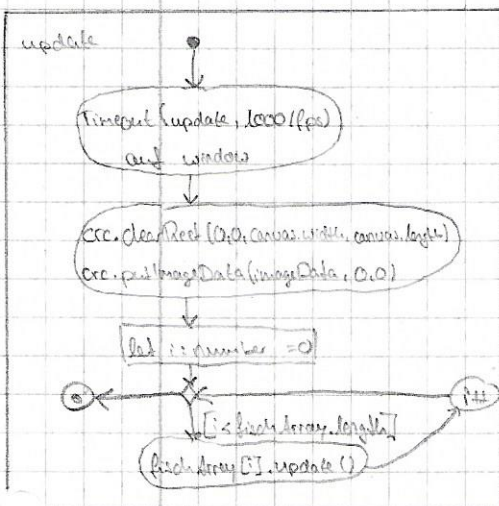 update
Timeout (update, 1000/fps)
auf window
crc.clearRect (0,0, canvas.width, canvas.length)
crc.putImageData (imageData, 0,0)
let i: number = 0
i++
[i < fischArray.length]
fischArray [i].update ()